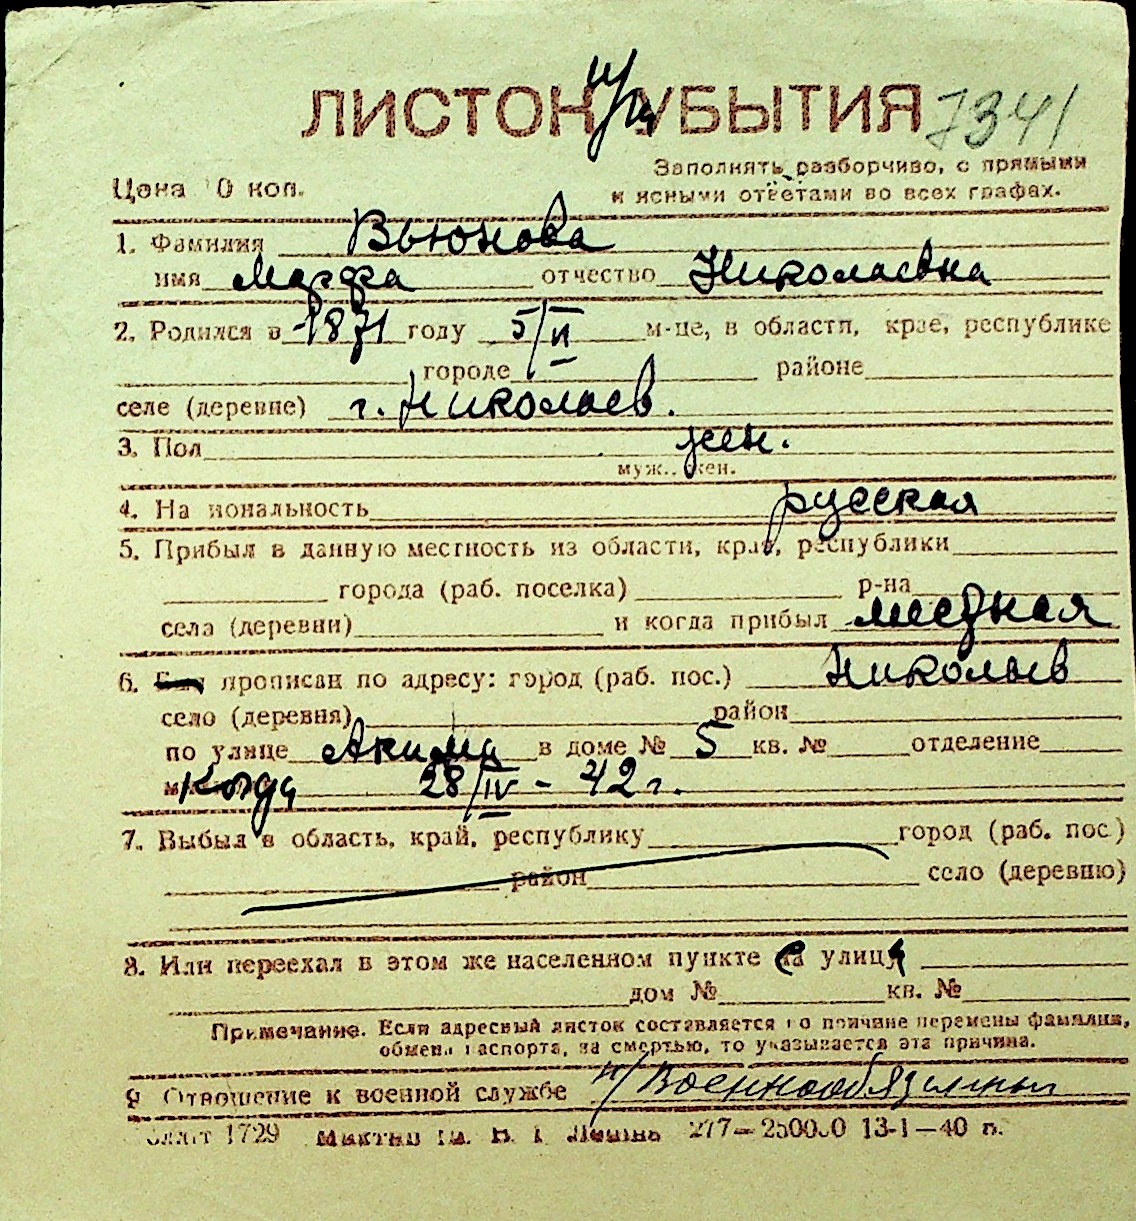 ЛИСТОК УБЫТИЯ 7341
Заполнять разборчиво, с прямыми
Цена 0 коп. и ясными ответами во всех графах.
1. Фамилия Вьюнова
имя Марфа отчество Николаевна
2. Родился в 1871 году 5/VI м-це, в области, крае, республике
городе районе
селе (деревне) г. Николаев.
3. Пол жен.
муж., жен.
4. Национальность русская
5. Прибыл в данную местность из области, края, республики
города (раб. поселка) р-на
села (деревни) и когда прибыл местная
6. прописан по адресу: город (раб. пос.) Николаев
село (деревня) район
по улице Акима в доме № 5 кв. № отделение
Когда 28/IV - 42 г.
7. Выбыл в область, край, республику город (раб. пос)
район село (деревню)
8. Или переехал в этом же населенном пункте на улицу
дом № кв. №
Примечание. Если адресный листок составляется по причине перемены фамилии,
обмена паспорта, за смертью, то указывается эта причина.
9 Отношение к военной службе н/военнообязанный
1729 277—250000 13-1—40 г.